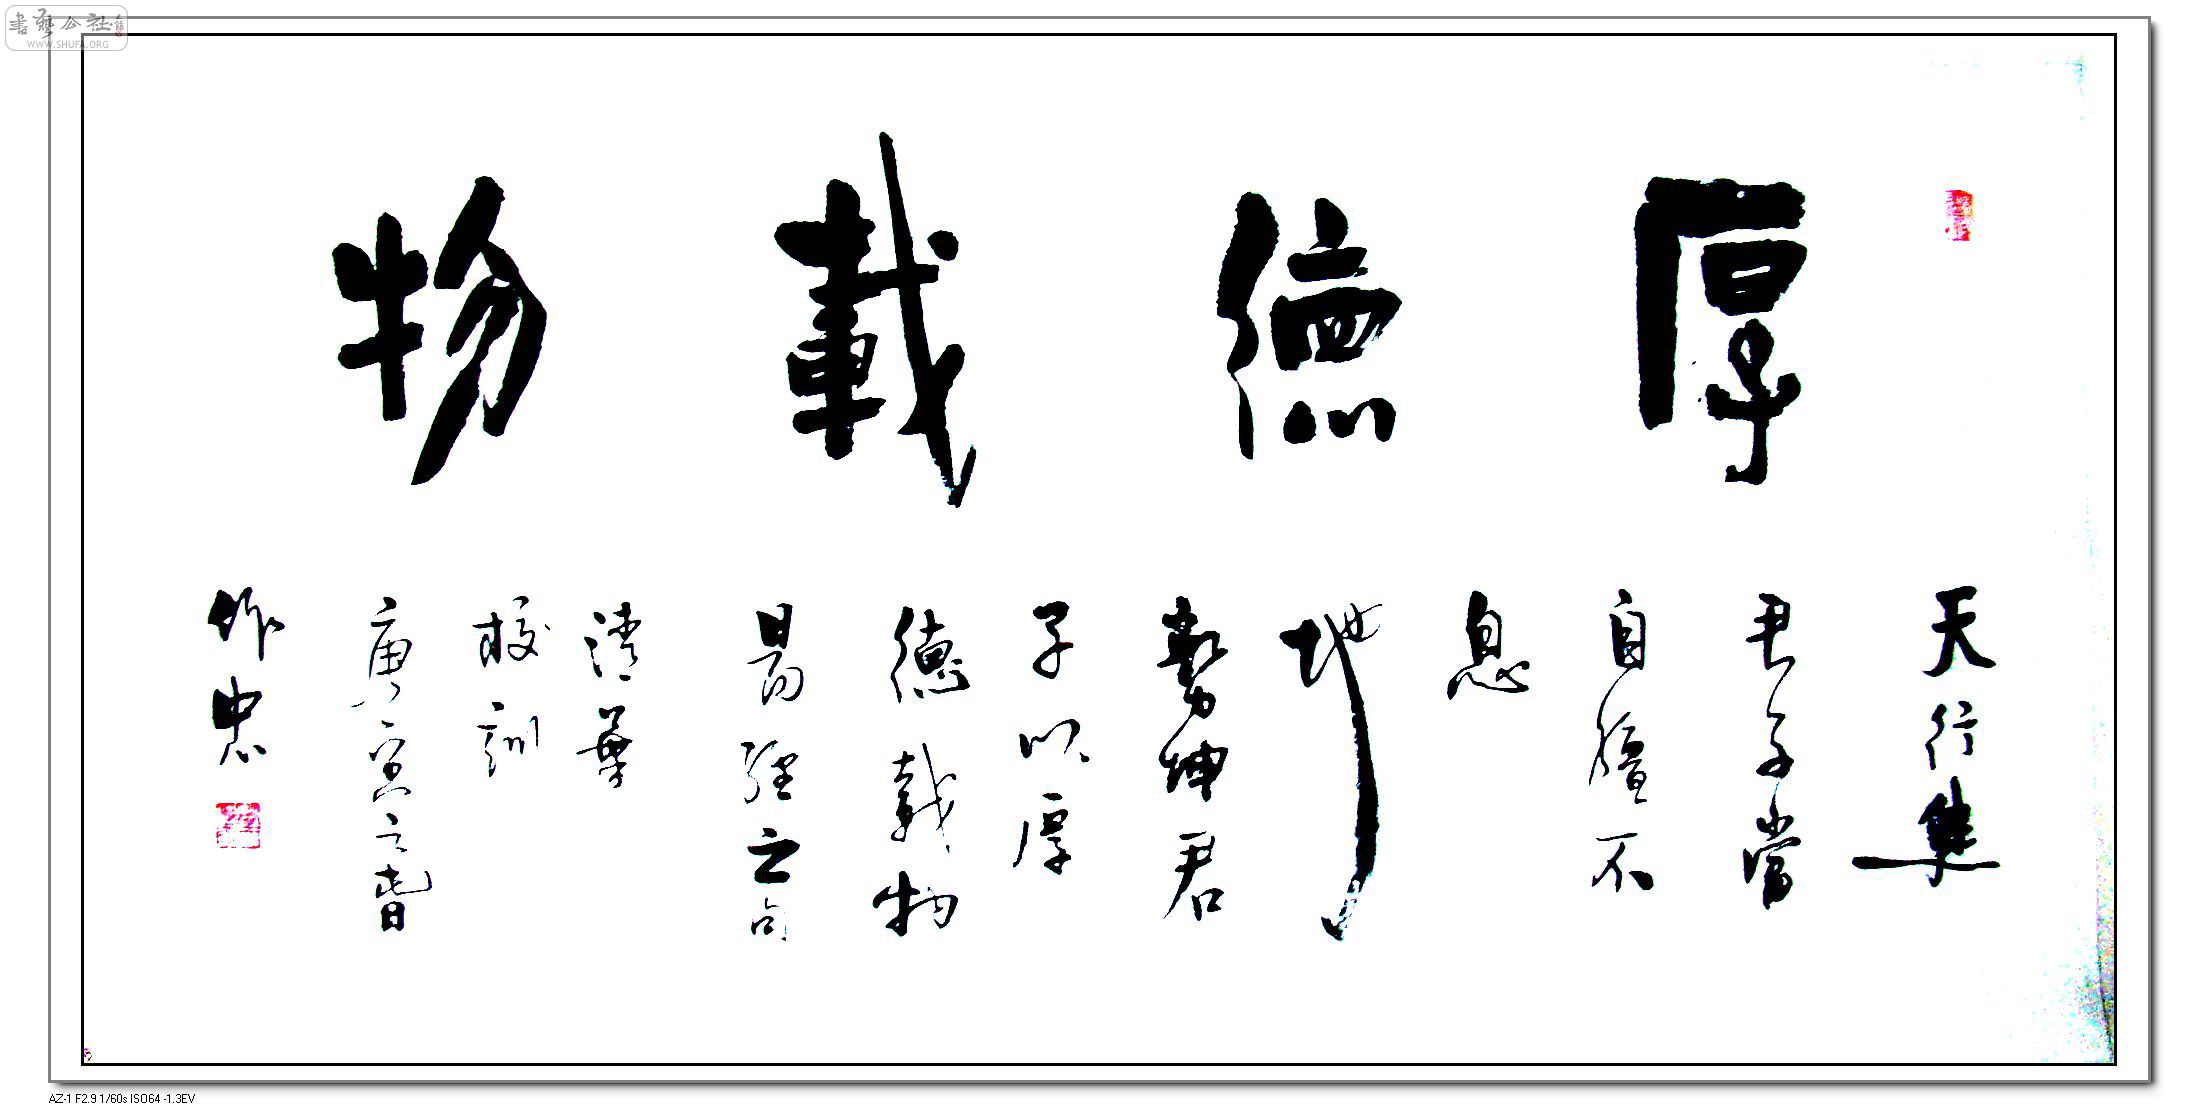 書藝公社
WWW.SHUFA.ORG
厚德載物
天行
君子當
自強不
息
地
勢坤君
子以厚
德載物
易經之句
清華
校訓
庚寅之春
作忠
AZ-1 F2.9 1/60s ISO64 -1.3EV